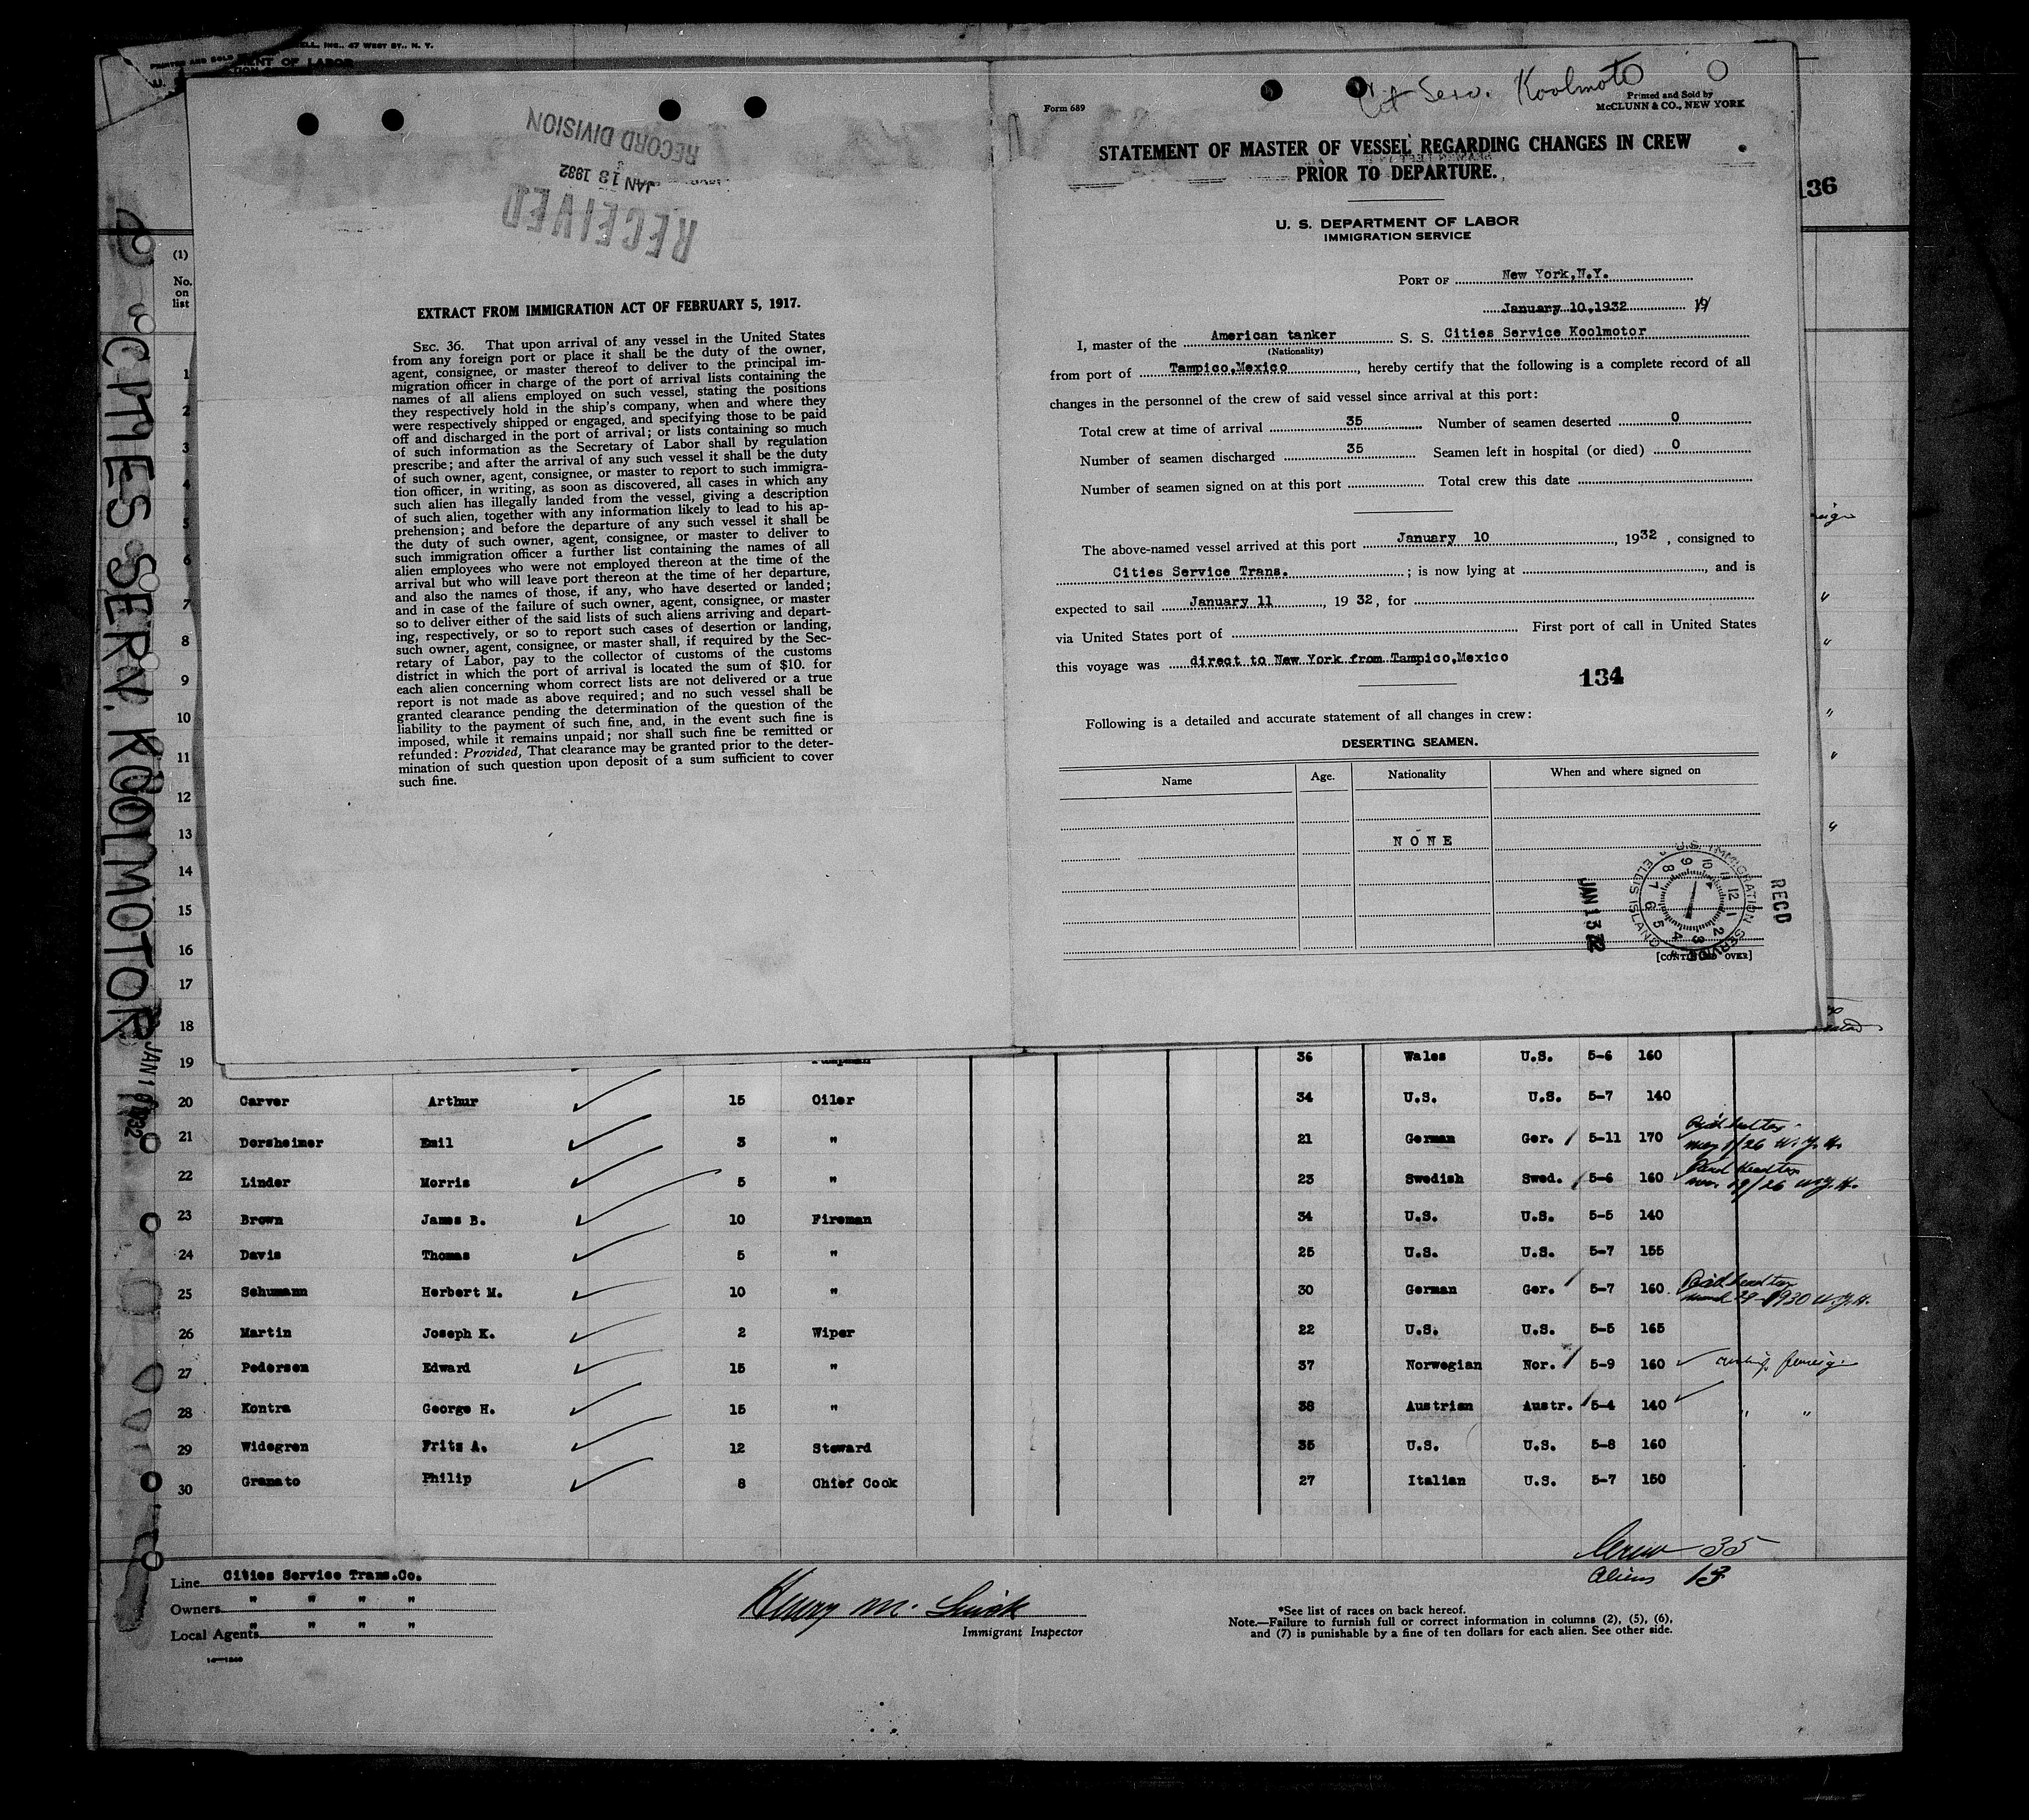 ELL, INC., 47 WEST ST., N. Y.
PRINTED AND SOLD
MENT OF LABOR
136
(1)
No.
on
list
CITIES SERV. KOOLMOTOR
JAN 10 1932
RECEIVED
JAN 13 1932
RECORD DIVISION
EXTRACT FROM IMMIGRATION ACT OF FEBRUARY 5, 1917.
SEC. 36. That upon arrival of any vessel in the United States
from any foreign port or place it shall be the duty of the owner,
agent, consignee, or master thereof to deliver to the principal im-
migration officer in charge of the port of arrival lists containing the
names of all aliens employed on such vessel, stating the positions
they respectively hold in the ship's company, when and where they
were respectively shipped or engaged, and specifying those to be paid
off and discharged in the port of arrival; or lists containing so much
of such information as the Secretary of Labor shall by regulation
prescribe; and after the arrival of any such vessel it shall be the duty
of such owner, agent, consignee, or master to report to such immigra-
tion officer, in writing, as soon as discovered, all cases in which any
such alien has illegally landed from the vessel, giving a description
of such alien, together with any information likely to lead to his ap-
prehension; and before the departure of any such vessel it shall be
the duty of such owner, agent, consignee, or master to deliver to
such immigration officer a further list containing the names of all
alien employees who were not employed thereon at the time of the
arrival but who will leave port thereon at the time of her departure,
and also the names of those, if any, who have deserted or landed;
and in case of the failure of such owner, agent, consignee, or master
so to deliver either of the said lists of such aliens arriving and depart-
ing, respectively, or so to report such cases of desertion or landing,
such owner, agent, consignee, or master shall, if required by the Sec-
retary of Labor, pay to the collector of customs of the customs
district in which the port of arrival is located the sum of $10. for
each alien concerning whom correct lists are not delivered or a true
report is not made as above required; and no such vessel shall be
granted clearance pending the determination of the question of the
liability to the payment of such fine, and, in the event such fine is
imposed, while it remains unpaid; nor shall such fine be remitted or
refunded: Provided, That clearance may be granted prior to the deter-
mination of such question upon deposit of a sum sufficient to cover
such fine.
Cit Serv. Koolmoto
Form 689
Printed and Sold by
McCLUNN & CO., NEW YORK
STATEMENT OF MASTER OF VESSEL REGARDING CHANGES IN CREW
PRIOR TO DEPARTURE.
U. S. DEPARTMENT OF LABOR
IMMIGRATION SERVICE
PORT OF New York,N.Y.
January 10,1932 19
I, master of the American tanker S. S. Cities Service Koolmotor
(Nationality)
from port of Tampico,Mexico, hereby certify that the following is a complete record of all
changes in the personnel of the crew of said vessel since arrival at this port:
Total crew at time of arrival 35 Number of seamen deserted 0
Number of seamen discharged 35 Seamen left in hospital (or died) 0
Number of seamen signed on at this port Total crew this date
The above-named vessel arrived at this port January 10, 1932, consigned to
Cities Service Trans.; is now lying at , and is
expected to sail January 11, 19 32, for
via United States port of First port of call in United States
this voyage was direct to New York from Tampico,Mexico
134
Following is a detailed and accurate statement of all changes in crew:
DESERTING SEAMEN.
Name Age. Nationality When and where signed on
NONE
RECD
U.S. IMMIGRATION SERVICE
ELLIS ISLAND
JAN 13 32
[CONTINUED OVER]
1
2
3
4
5
6
7
8
9
10
11
12
13
14
15
16
17
18
19 36 Wales U.S. 5-6 160
20 Carver Arthur 15 Oiler 34 U.S. U.S. 5-7 140
21 Dorsheimer Emil 3 " 21 German Ger. 5-11 170
22 Linder Morris 5 " 23 Swedish Swed. 5-6 160
23 Brown James B. 10 Fireman 34 U.S. U.S. 5-5 140
24 Davis Thomas 5 " 25 U.S. U.S. 5-7 155
25 Schumann Herbert M. 10 " 30 German Ger. 5-7 160
26 Martin Joseph K. 2 Wiper 22 U.S. U.S. 5-5 165
27 Pedersen Edward 15 " 37 Norwegian Nor. 5-9 160
28 Kontra George H. 15 " 38 Austrian Austr. 5-4 140 " "
29 Widegren Fritz A. 12 Steward 35 U.S. U.S. 5-8 160
30 Granato Philip 8 Chief Cook 27 Italian U.S. 5-7 150
Crew 35
Aliens 13
Line Cities Service Trans.Co.
Owners " " " "
Local Agents " " " "
Henry M.
Immigrant Inspector
*See list of races on back hereof.
Note.—Failure to furnish full or correct information in columns (2), (5), (6),
and (7) is punishable by a fine of ten dollars for each alien. See other side.